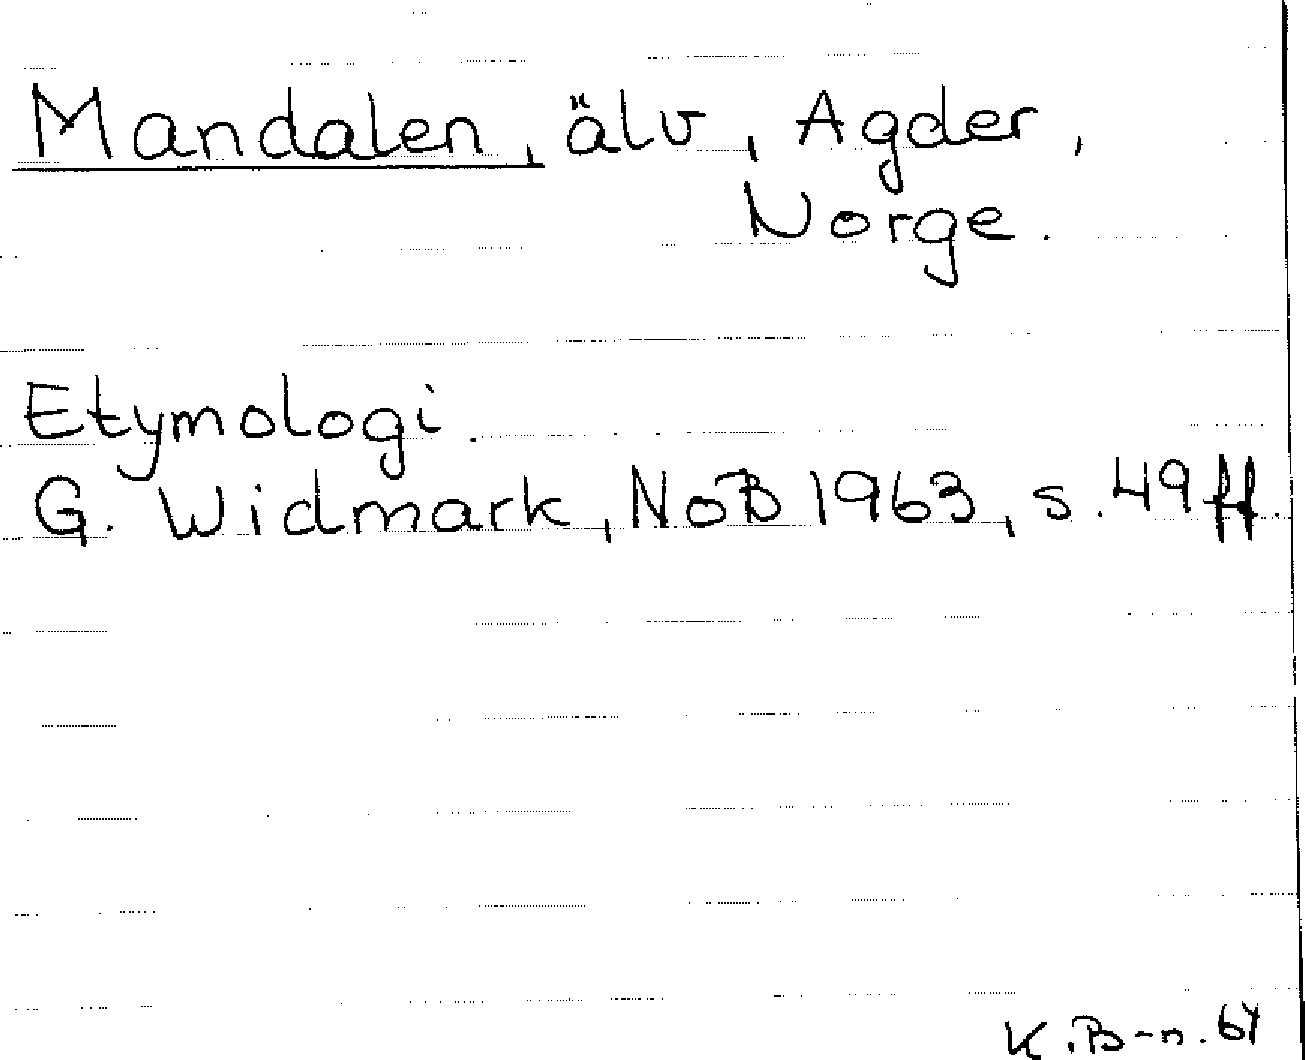 Mandalen, älv, Agder,
Norge.
Etymologi.
G. Widmark, NoB 1963, s. 49 ff.
K.B-n. 64